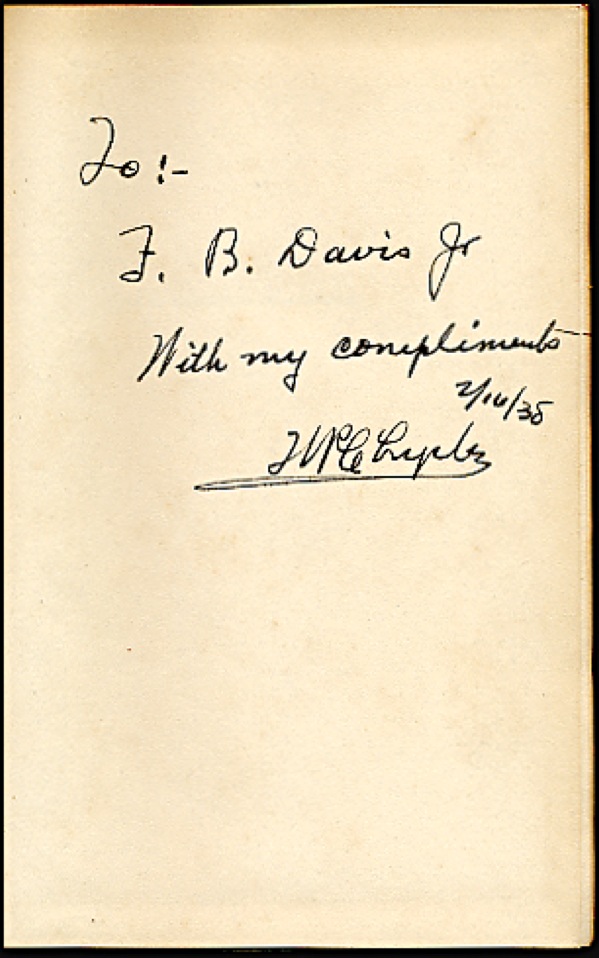 To:-
F. B. Davis Jr
With my compliments
2/14/35